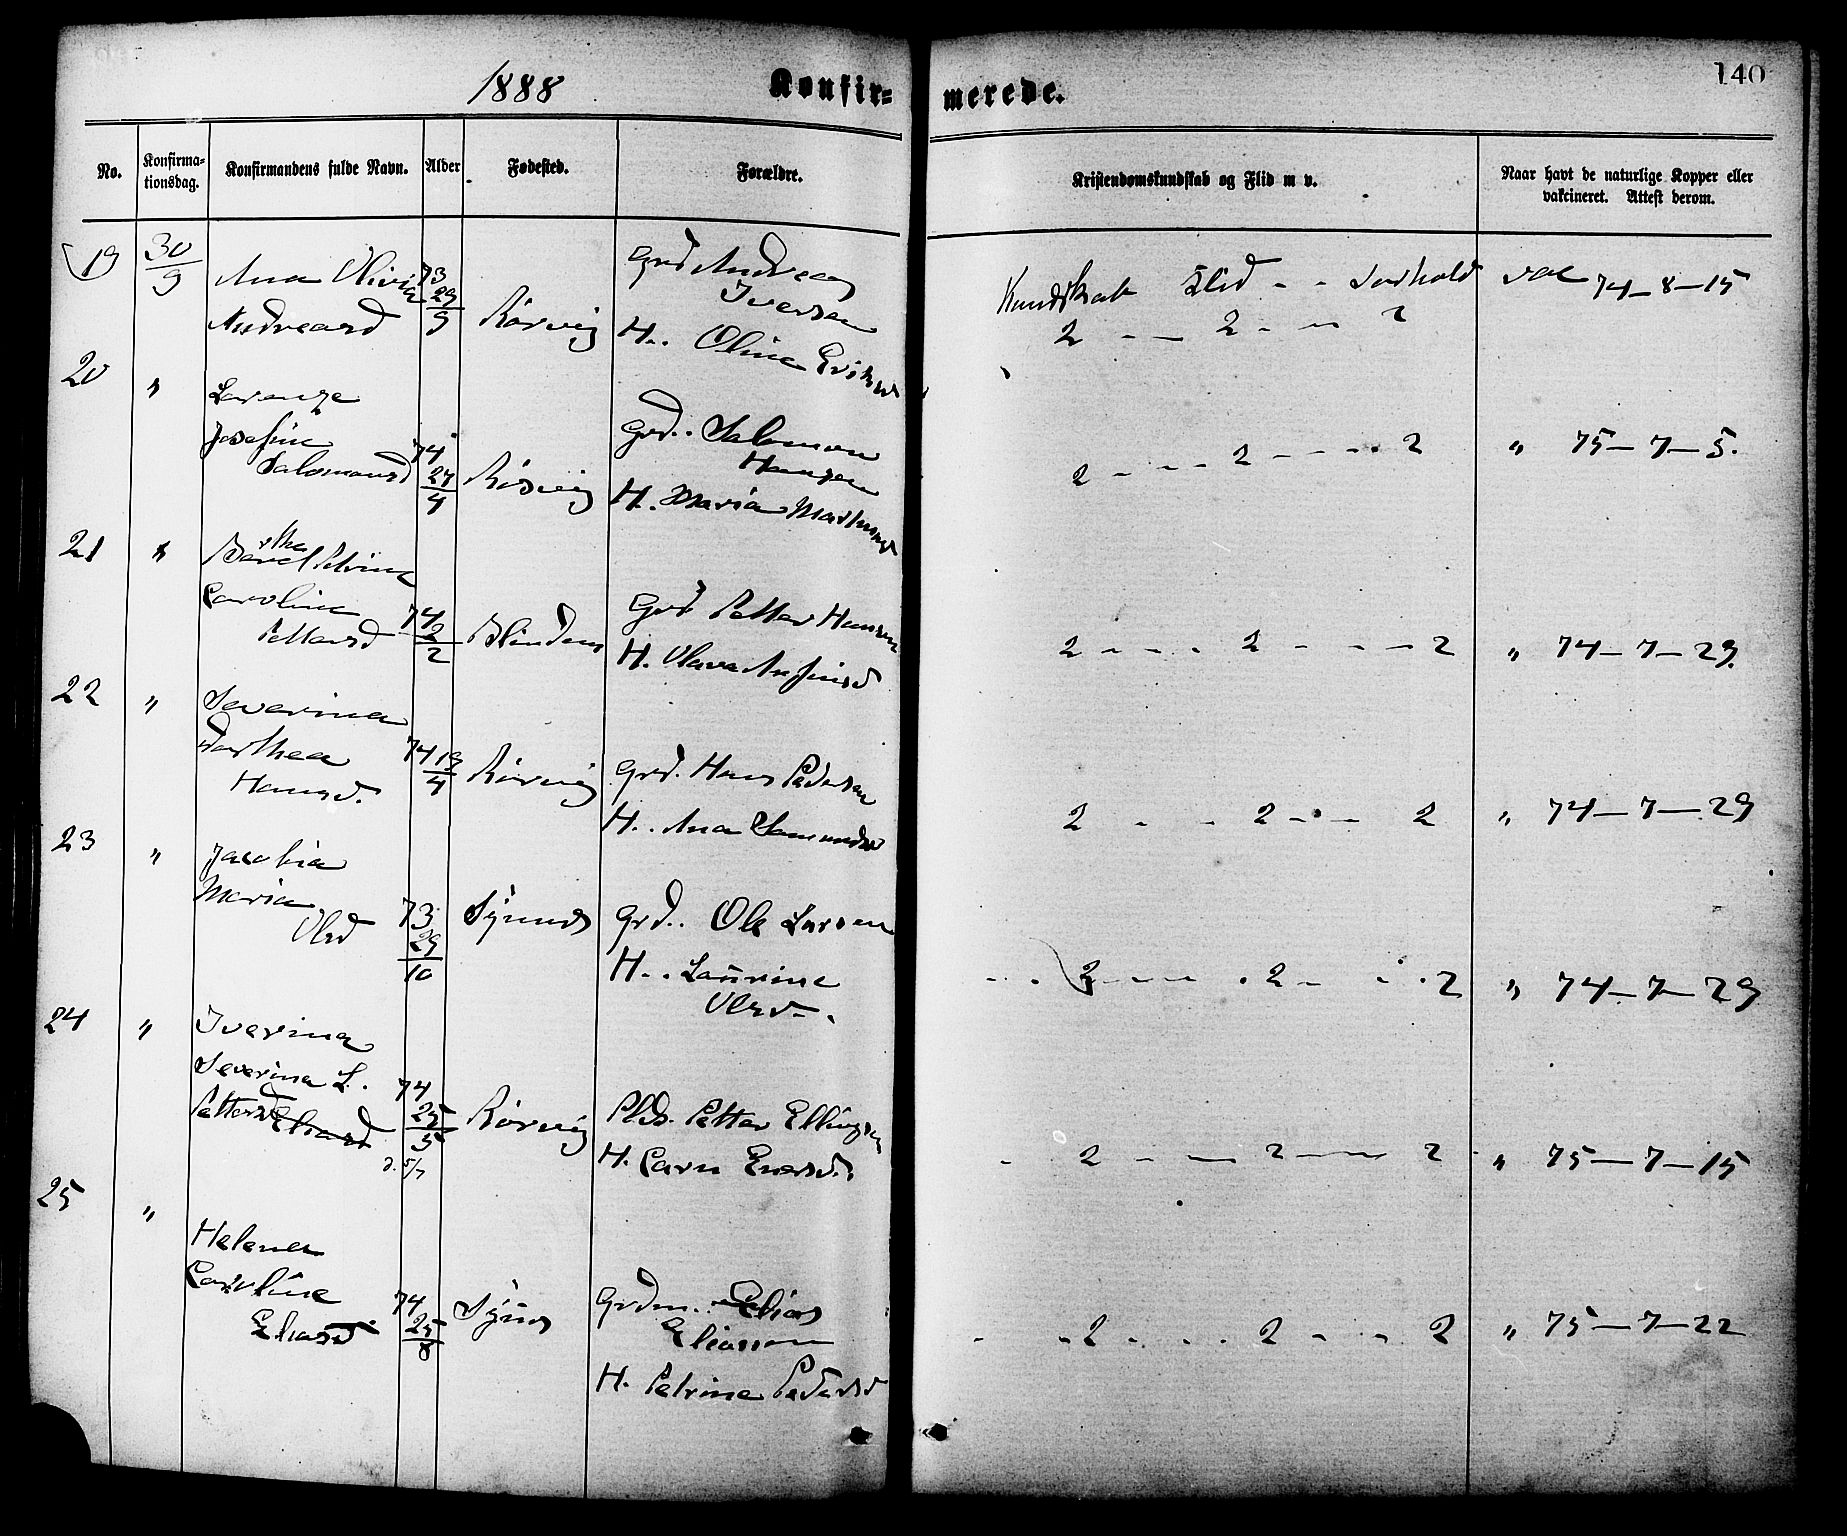 1888 Konfir= merede. 140
No. Konfirma- tionsdag. Konfirmandens fulde Navn. Alder Fødested. Forældre. Kristendomskundskab og Flid m v. Naar havt de naturlige Kopper eller vakcineret. Attest derom.
19 30/9 Ana Olivia 73 Grd Andreas
Andreasd 29/9 Rørvig Iversen
H.. Oline
Kundskab Flid - - Forhold vac 74-8-15
2 - - 2 - - 2
20 " Lorenze
Josefine 74 Grd.. Salomon
Salomonsd 27/4 Rørvig Hansen
H. Maria
2 - - - 2 - - - - 2 " 75-7-5.
21 " Petrine
Caroline 74 Grd Petter Hansen
Pettersd 2/2 H. Anfinsd
2 - - - 2 - - - 2 " 74-7-29.
22 " Severina
Dorthea 74 19/4 Rørvig Grd. Hans Pedersen
Hansd. H.. Ana
2 - - 2 - - - 2 " 74-7-29
23 " Jacobia
Maria 73 Grd.. Ole Larsen
Olsd 29/10 H.. Laurine
Olsd.
2 - - - 2 - - 2 " 74-7-29
24 " Iverina
Severina L. 74
Pettersd Eliasd 25/5 Rørvig Plds. Petter Ellingsen
d. 5/7 H. Caren
- 2 - - 2 - - 2 " 75-7-15
25 " Helena
Caroline 74 Grdm. Elias
Eliasd 25/8 Eliassen
H. Petrine Pedersd
- - 2 - - - 2 - - 2 " 75-7-22